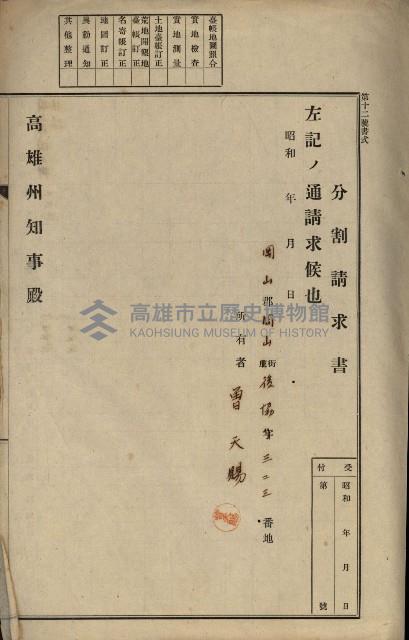 第十二號書式
臺帳地圖照合
實地檢査
實地測量
土地臺帳訂正
荒地開墾地臺帳訂正
名寄帳訂正
地圖訂正
異動通知
其他整理
分割請求書
左記ノ通請求候也
昭和 年 月 日
岡山郡岡山街庄後協字三二三番地
所有者 曾天賜
高雄州知事殿
受付
昭和 年 月 日
第 號
高雄市立歷史博物館
KAOHSIUNG MUSEUM OF HISTORY